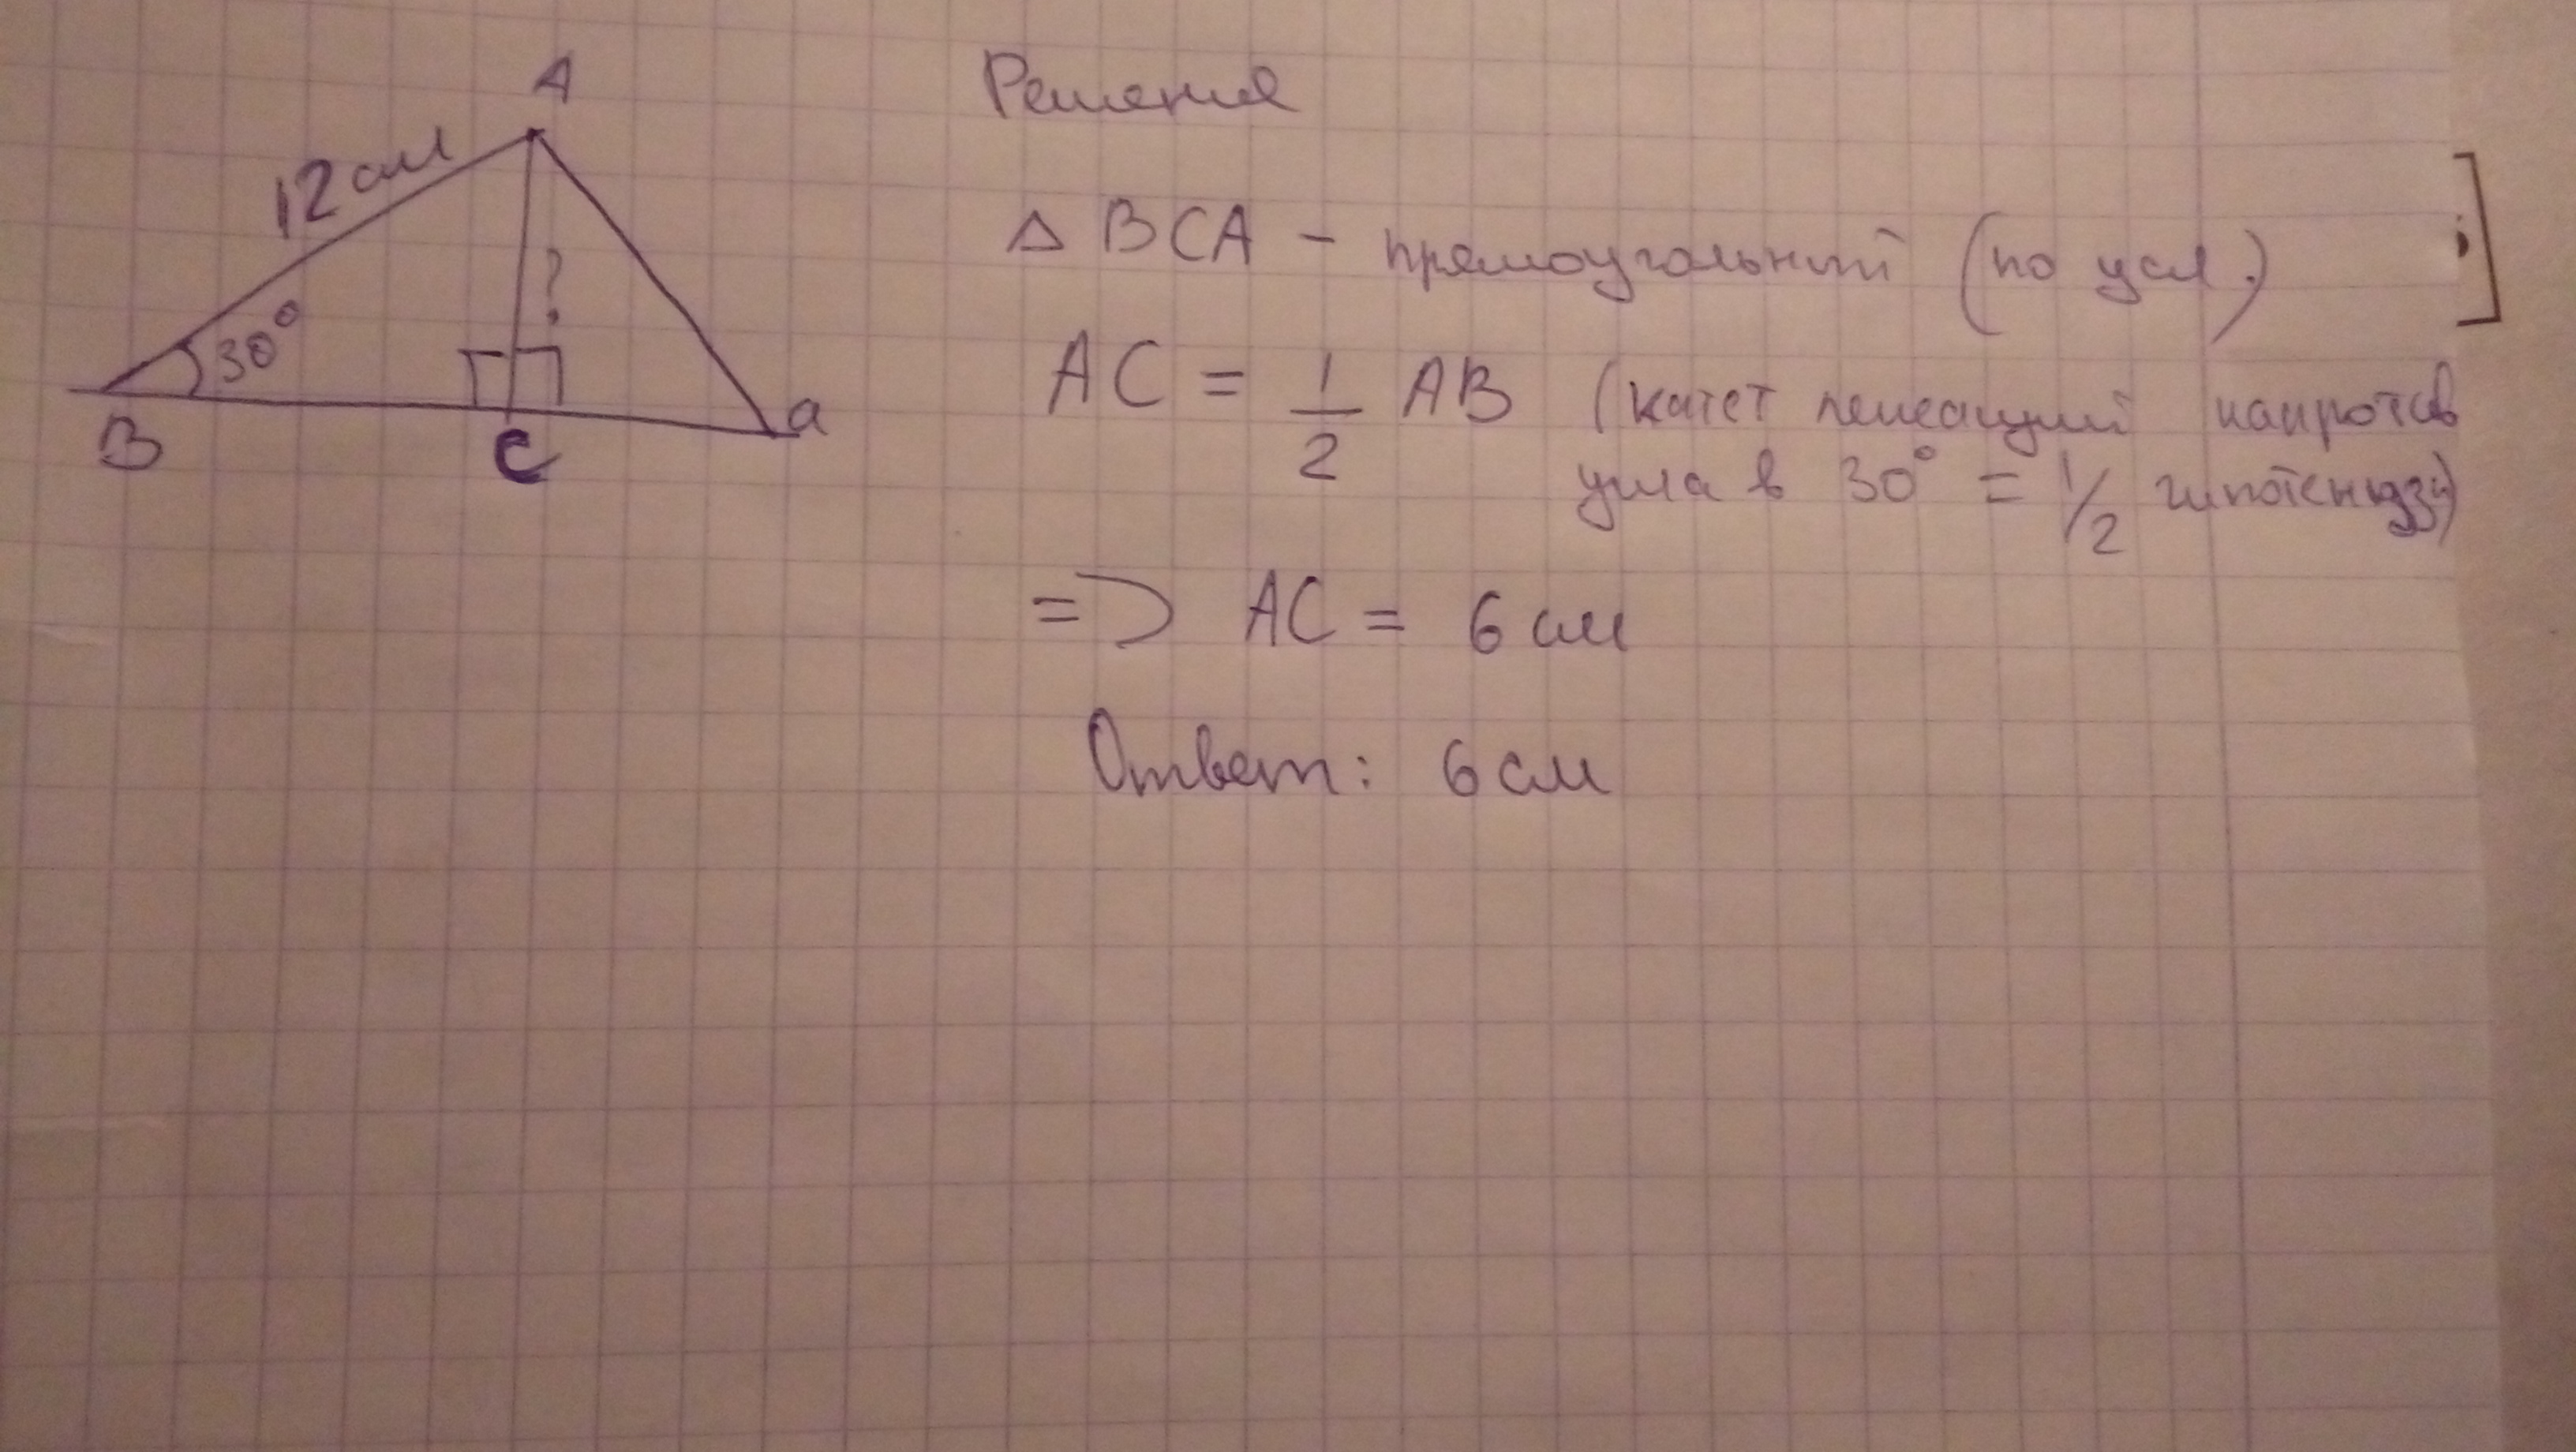 A
12 см
?
30°
B
C
a
Решения
△ BCA - прямоугольный (по усл.)
AC = 1/2 AB (катет лежащий напротив
угла в 30° = 1/2 гипотенузы)
=> AC = 6 см
Ответ: 6 см